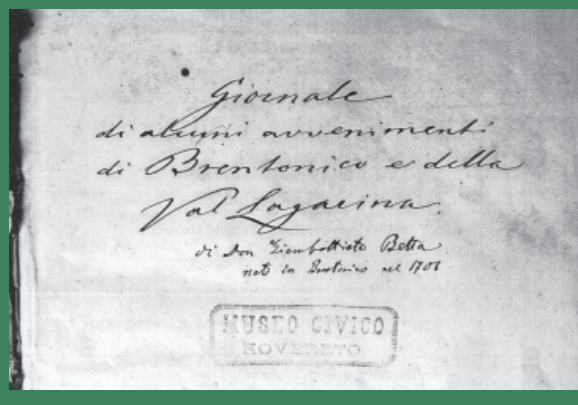 Giornale
di alcuni avvenimenti
di Brentonico e della
Val Lagarina.
di Don Giambattista Betta
nato in Brentonico nel 1701
MUSEO CIVICO
ROVERETO